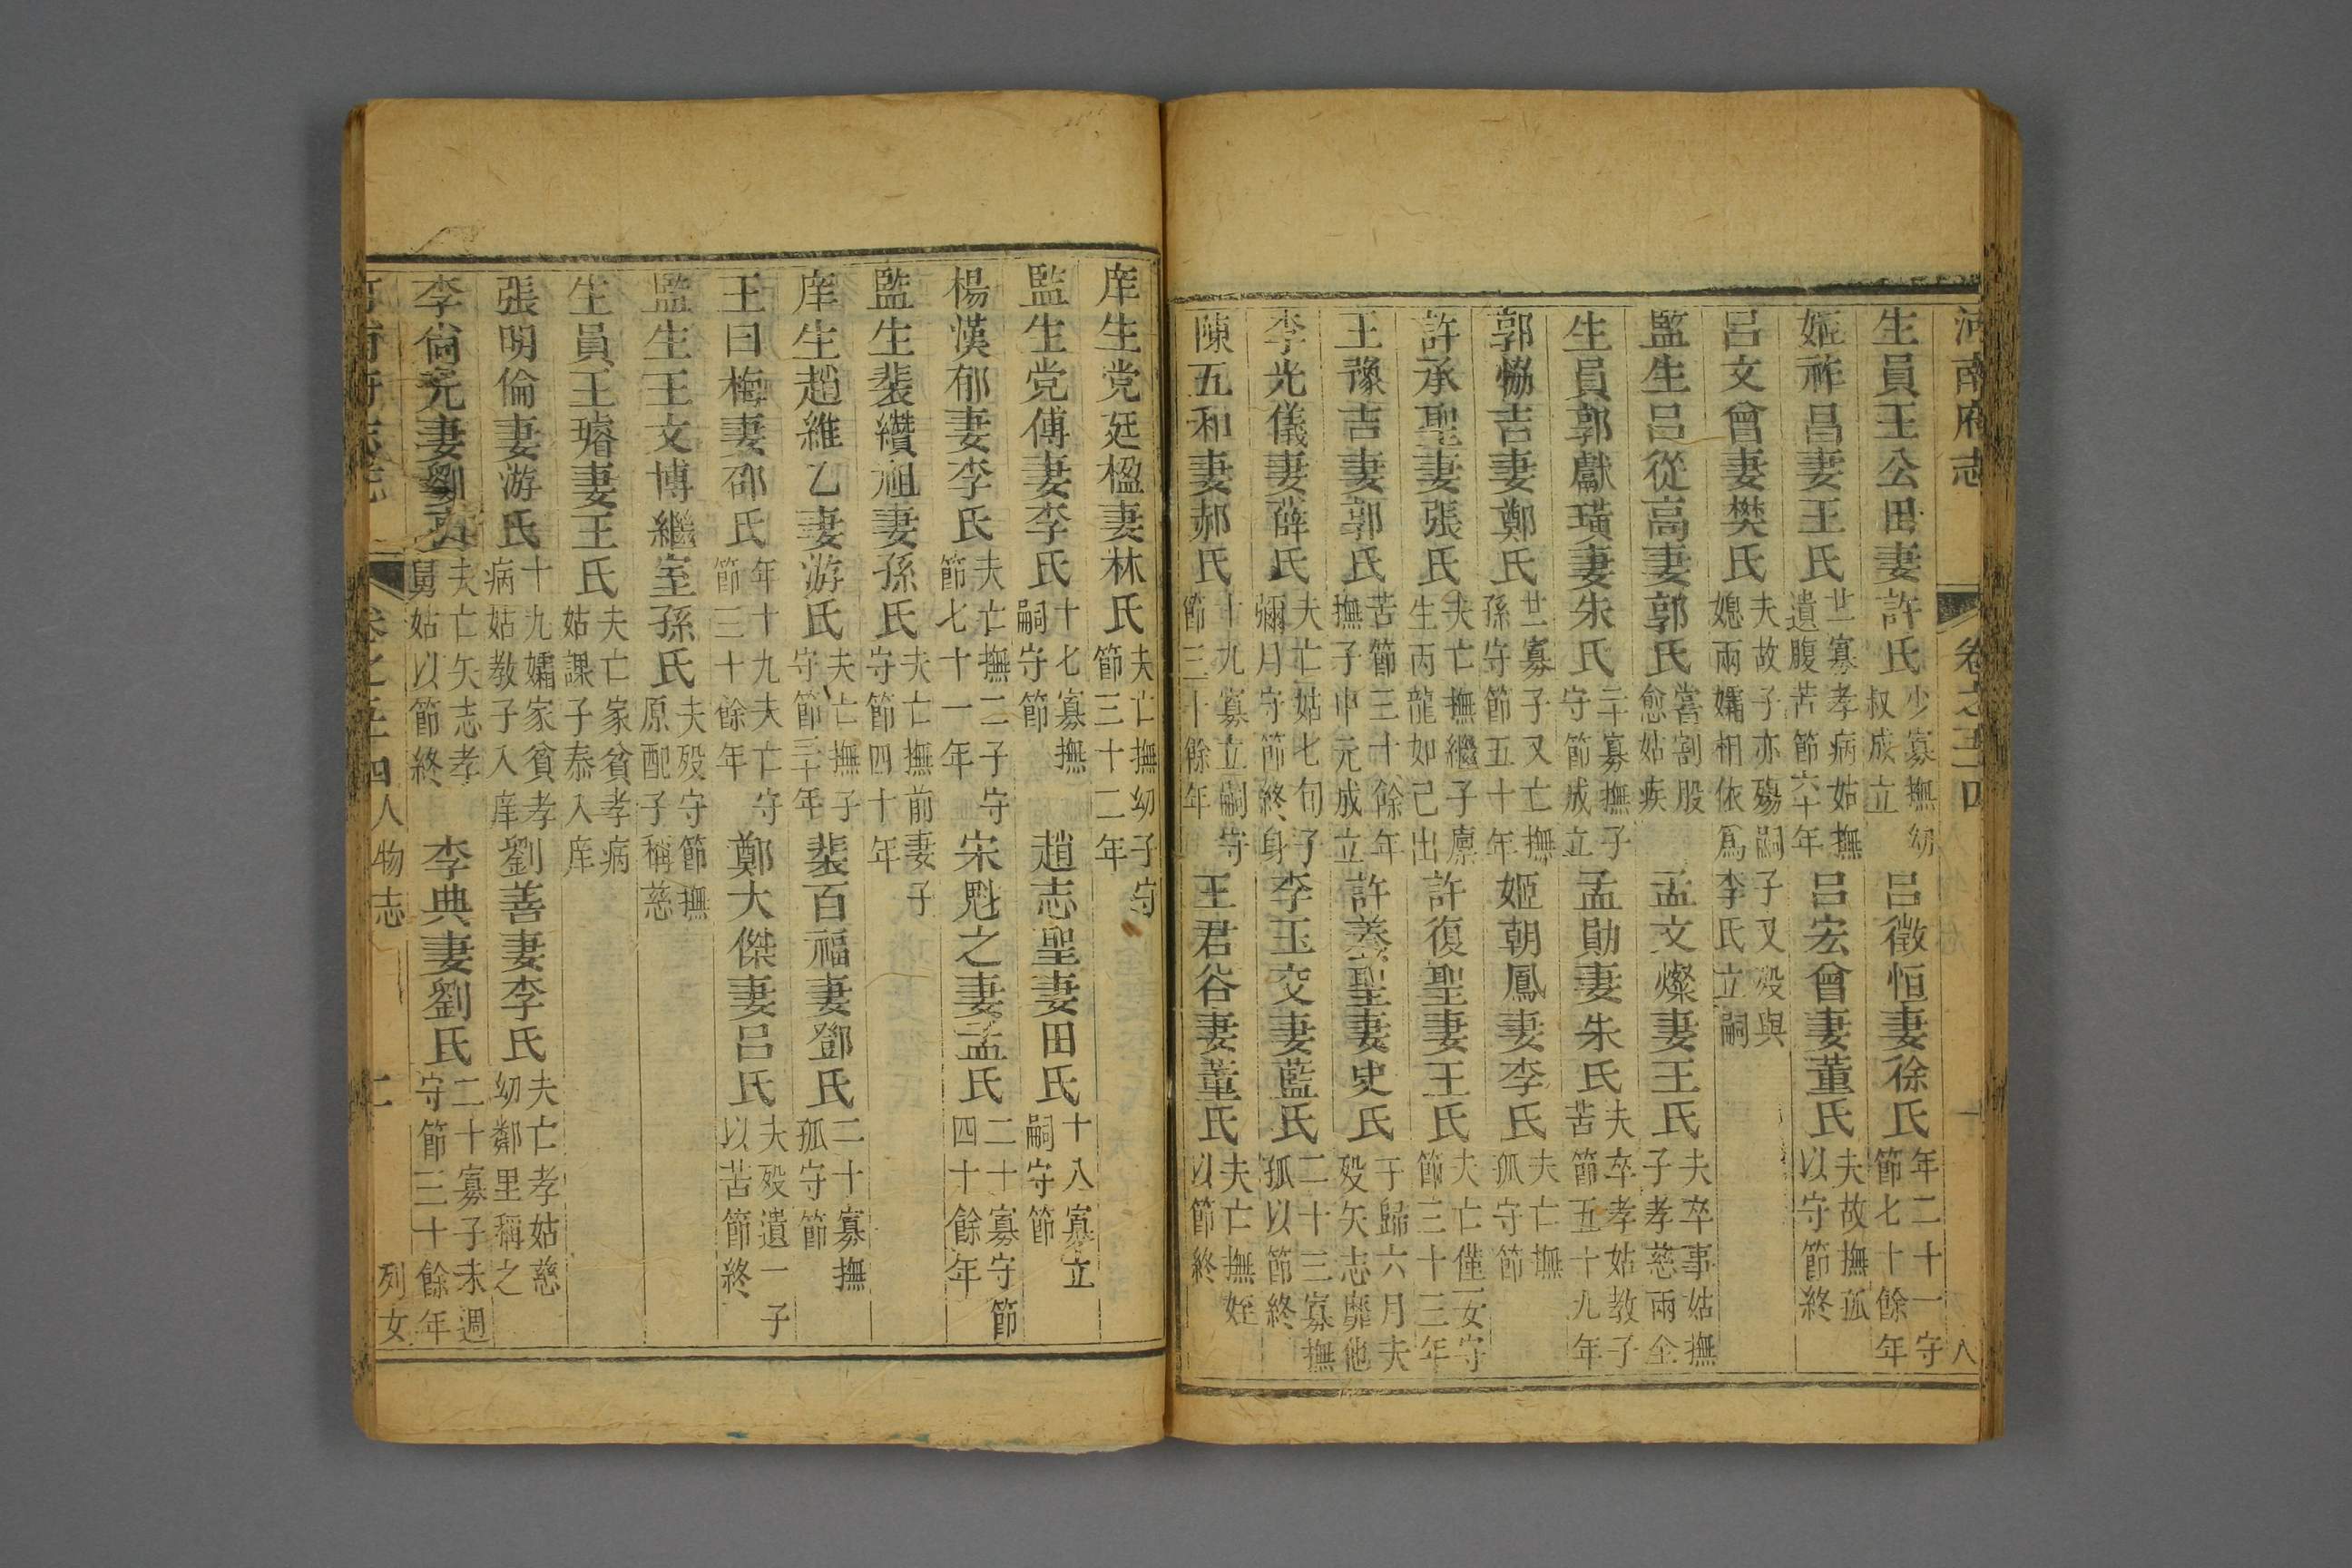 河南府志 卷之五十四 八
生員王公田妻許氏 少寡撫幼叔成立 呂徵恒妻徐氏 年二十一守節七十餘年
姬祚昌妻王氏 廿寡孝病姑撫遺腹苦節六十年 呂宏曾妻董氏 夫故撫孤以守節終
呂文曾妻樊氏 夫故子亦殤嗣子又殁與媳兩孀相依爲李氏立嗣
監生呂從高妻郭氏 嘗割股愈姑疾 孟文燦妻王氏 夫卒事姑撫子孝慈兩全
生員郭獻璜妻朱氏 二十寡撫子守節成立 孟勛妻朱氏 夫卒孝姑教子苦節五十九年
郭協吉妻鄭氏 廿寡子又亡撫孫守節五十年 姬朝鳳妻李氏 夫亡撫孤守節
許承聖妻張氏 夫亡撫繼子廪生丙龍如己出 許復聖妻王氏 夫亡僅一女守節三十三年
王豫吉妻郭氏 苦節三十餘年撫子中元成立 許養聖妻史氏 于歸六月夫殁矢志靡他
李光儀妻薛氏 夫亡姑七旬子彌月守節終身 李玉交妻藍氏 二十三寡撫孤以節終
陳五和妻郝氏 十九寡立嗣守節三十餘年 王君谷妻董氏 夫亡撫姪以節終
庠生党廷楹妻林氏 夫亡撫幼子守節三十二年
監生党傅妻李氏 十七寡撫嗣守節 趙志聖妻田氏 十八寡立嗣守節
楊漢郁妻李氏 夫亡撫二子守節七十一年 宋魁之妻孟氏 二十寡守節四十餘年
監生裴纘祖妻孫氏 夫亡撫前妻子守節四十年
庠生趙維乙妻游氏 夫亡撫子守節三十年 裴百福妻鄧氏 二十寡撫孤守節
王曰梅妻邵氏 年十九夫亡守節三十餘年 鄭大傑妻呂氏 夫殁遺一子以苦節終
監生王文博繼室孫氏 夫殁守節撫原配子稱慈
生員王璿妻王氏 夫亡家貧孝病姑課子泰入庠
張明倫妻游氏 十九孀家貧孝病姑教子入庠 劉善妻李氏 夫亡孝姑慈幼鄰里稱之
李尙光妻劉氏 夫亡矢志孝舅姑以節終 李典妻劉氏 二十寡子未週守節三十餘年
人物志 列女